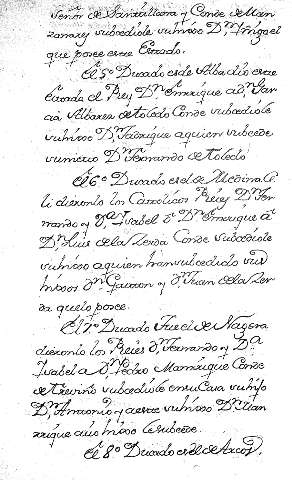 Señor de Santillana y Conde de Man
zanares subcediole su hijo Dn Iñigo el
que posee este Estado.
El 5º Ducado es de Alba dio este
Estado el Rey Dn Enrrique a Dn Gar
cia Albarez de Toledo Conde subcediole
su hijo Dn Fadrique a quien subcede
su nieto Dn Fernando de Toledo
El 6º Ducado es el de Medinaze
li dieronlo los Catolicos Reies Dn Fer
nando y Dª Isabel
Dn Luis de la Zerda Conde subcediole
su hijo a quien han subcedido sus
hijos Dn Gaston y Dn Juan de la Zer
da que lo posee.
El 7º Ducado fue el de Nagera
dieronlo los Reies Dn Fernando y Dª
Isabel a Dn Pedro Manrrique Conde
de Treviño subcediole en su Casa su hijo
Dn Antonio y a este su hijo Dn Man
rrique cuio hijo le subcede.
El 8º Ducado es el de Arcos,